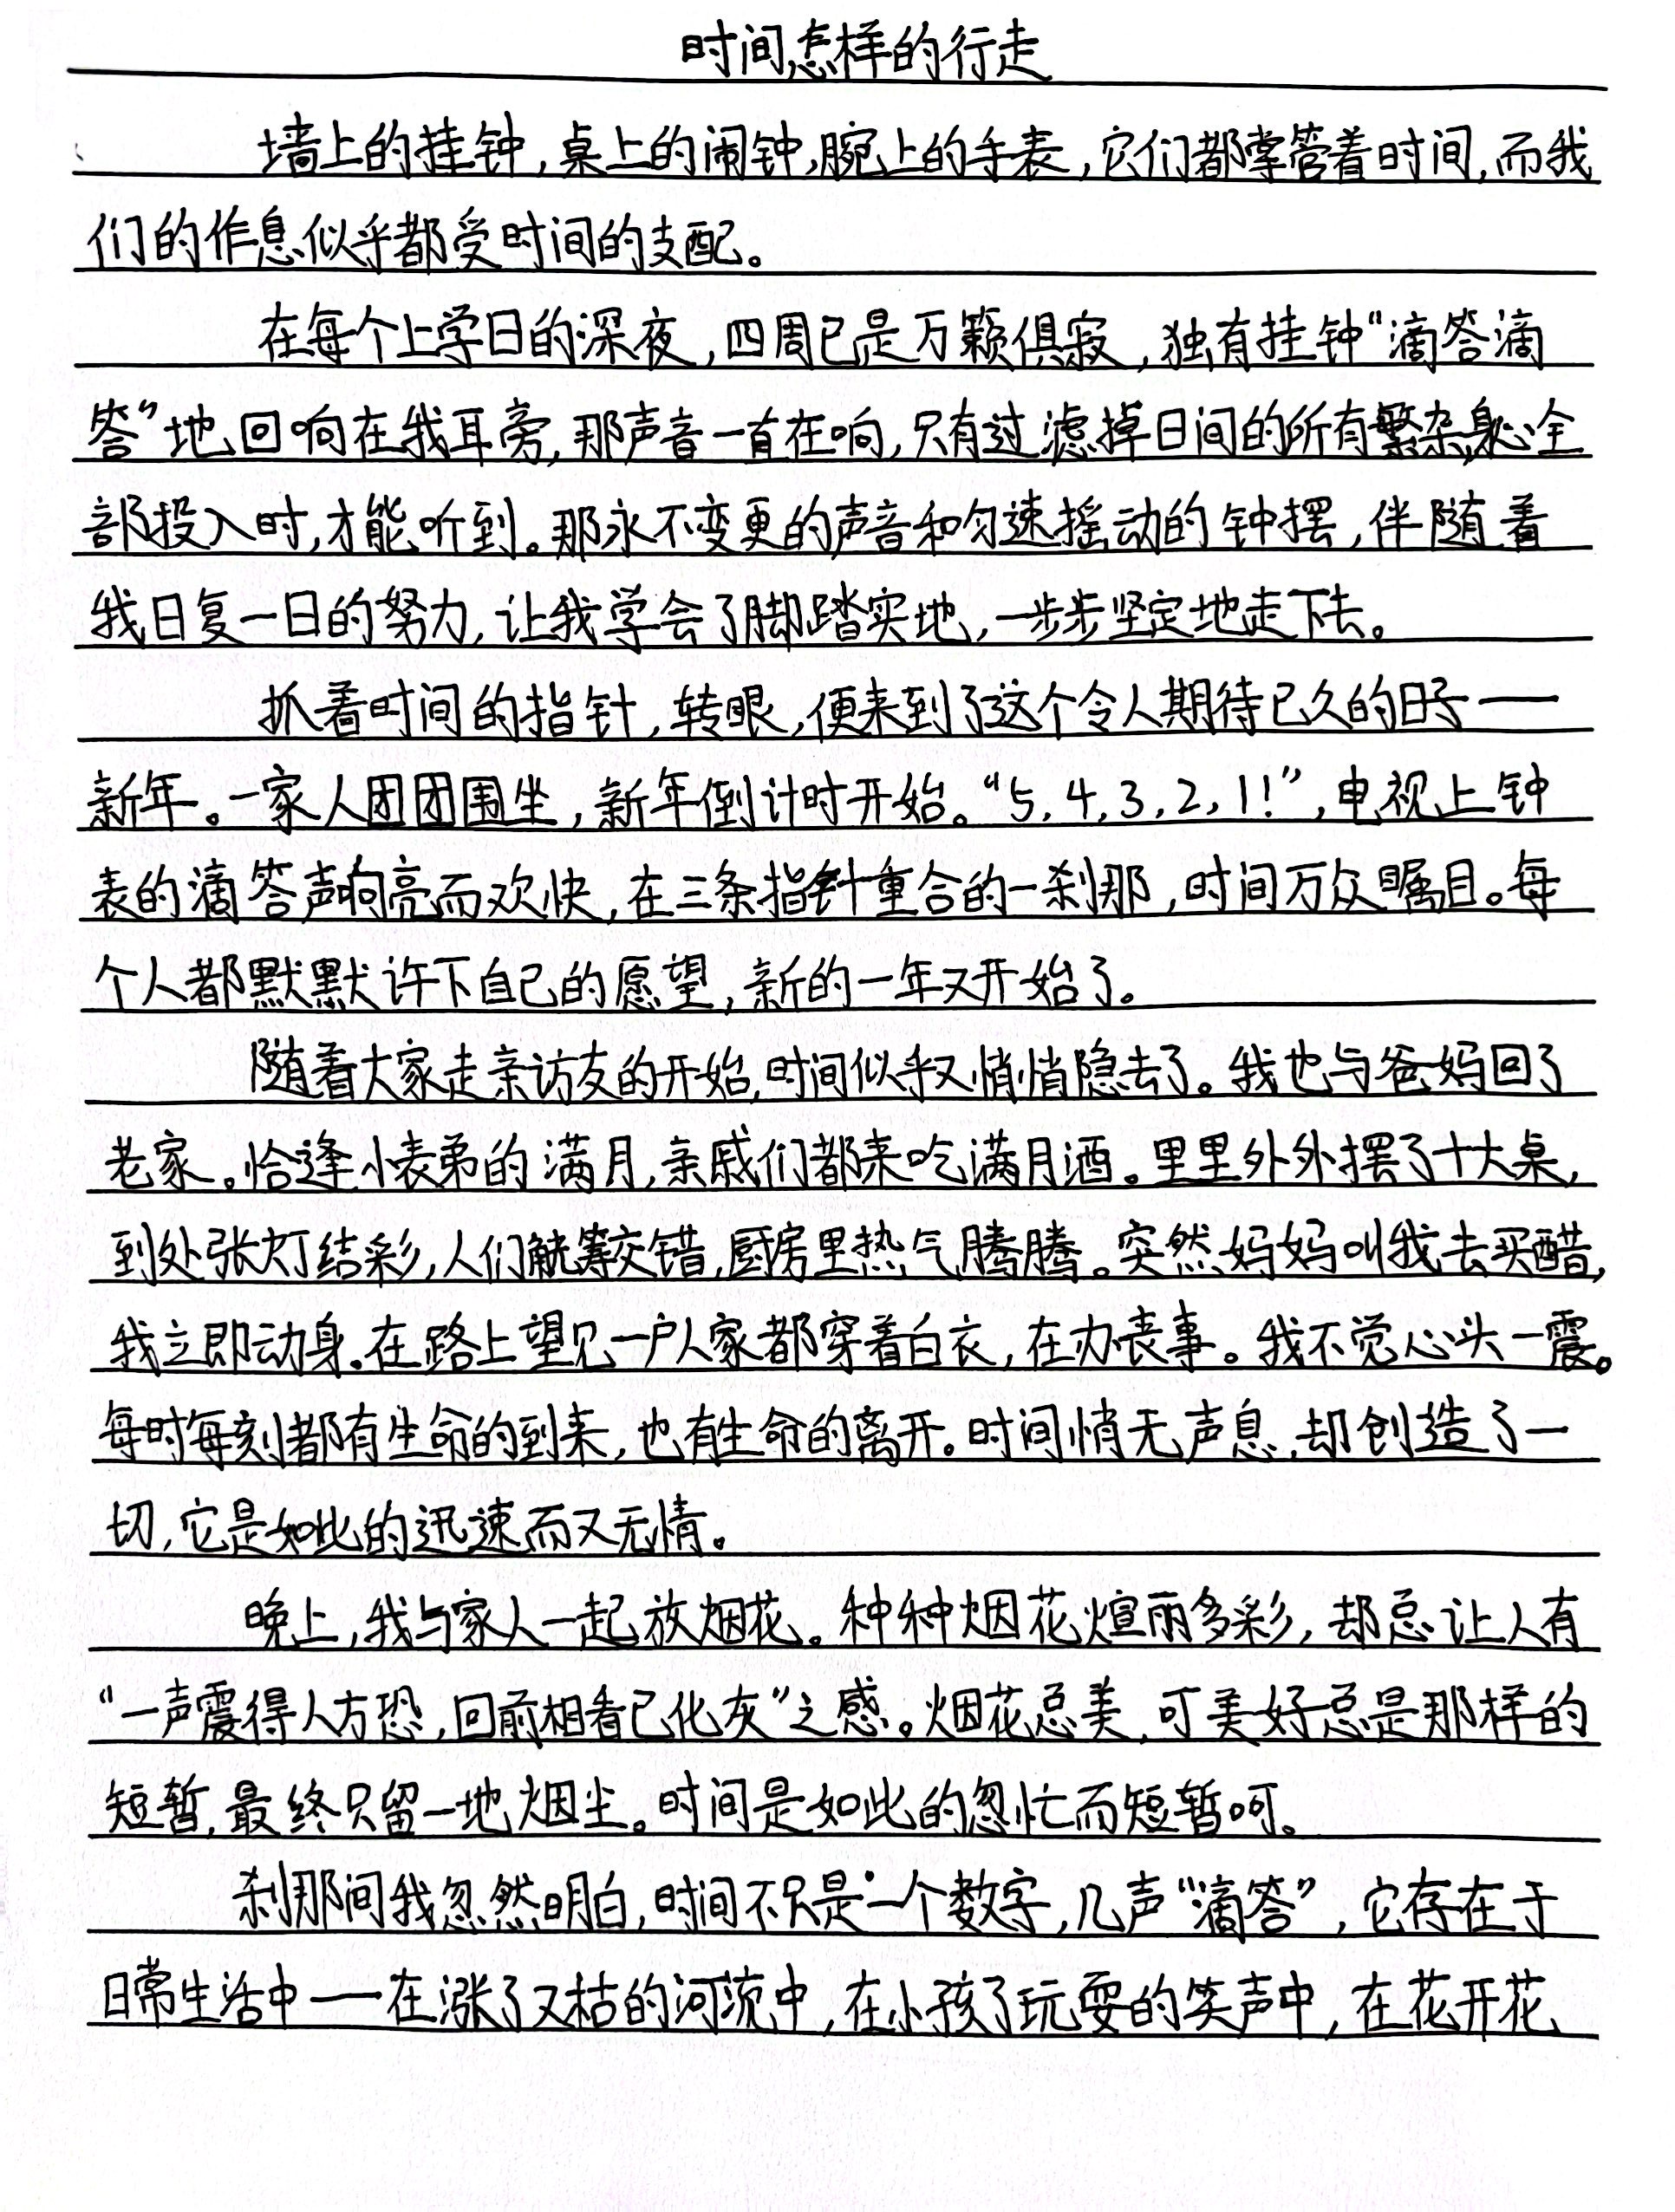 时间怎样的行走
墙上的挂钟,桌上的闹钟,腕上的手表,它们都掌管着时间,而我
们的作息似乎都受时间的支配。
在每个上学日的深夜,四周已是万籁俱寂,独有挂钟“滴答滴
答”地回响在我耳旁,那声音一直在响,只有过滤掉日间的所有繁杂,身心全
部投入时,才能听到。那永不变更的声音和匀速摇动的钟摆,伴随着
我日复一日的努力,让我学会了脚踏实地,一步步坚定地走下去。
抓着时间的指针,转眼,便来到了这个令人期待已久的日子——
新年。一家人团团围坐,新年倒计时开始。“5,4,3,2,1!”,电视上钟
表的滴答声响亮而欢快,在三条指针重合的一刹那,时间万众瞩目。每
个人都默默许下自己的愿望,新的一年又开始了。
随着大家走亲访友的开始,时间似乎又悄悄隐去了。我也与爸妈回了
老家。恰逢小表弟的满月,亲戚们都来吃满月酒。里里外外摆了十大桌,
到处张灯结彩,人们觥筹交错,厨房里热气腾腾。突然妈妈叫我去买醋,
我立即动身.在路上望见一户人家都穿着白衣,在办丧事。我不觉心头一震。
每时每刻都有生命的到来,也有生命的离开。时间悄无声息,却创造了一
切,它是如此的迅速而又无情。
晚上,我与家人一起放烟花。种种烟花煊丽多彩,却总让人有
“一声震得人方恐,回前相看已化灰”之感。烟花总美,可美好总是那样的
短暂,最终只留一地烟尘。时间是如此的忽忙而短暂呵。
刹那间我忽然明白,时间不只是一个数字,几声“滴答”,它存在于
日常生活中——在涨了又枯的河流中,在小孩子玩耍的笑声中,在花开花